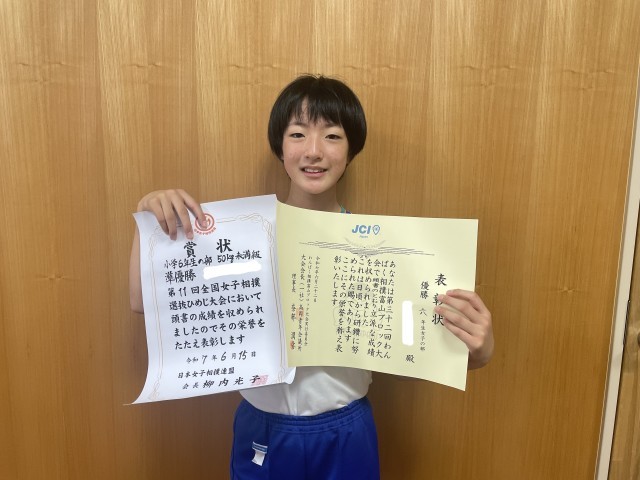 賞状
小学6年生の部 50kg未満級
準優勝
第11回全国女子相撲
選抜ひめじ大会において
頭書の成績を収められ
ましたのでその栄誉を
たたえ表彰します
令和7年6月15日
日本女子相撲連盟
会長 柳内光子
JCI
表彰状
優勝 六年生女子の部
殿
あなたは第三十二回わん
ぱく相撲富山ブロック大
会に頭書のとおり立派な成績
を収められました
これは日頃から研鑽に努
められた賜であります
ここにその栄誉を称え表
彰いたします